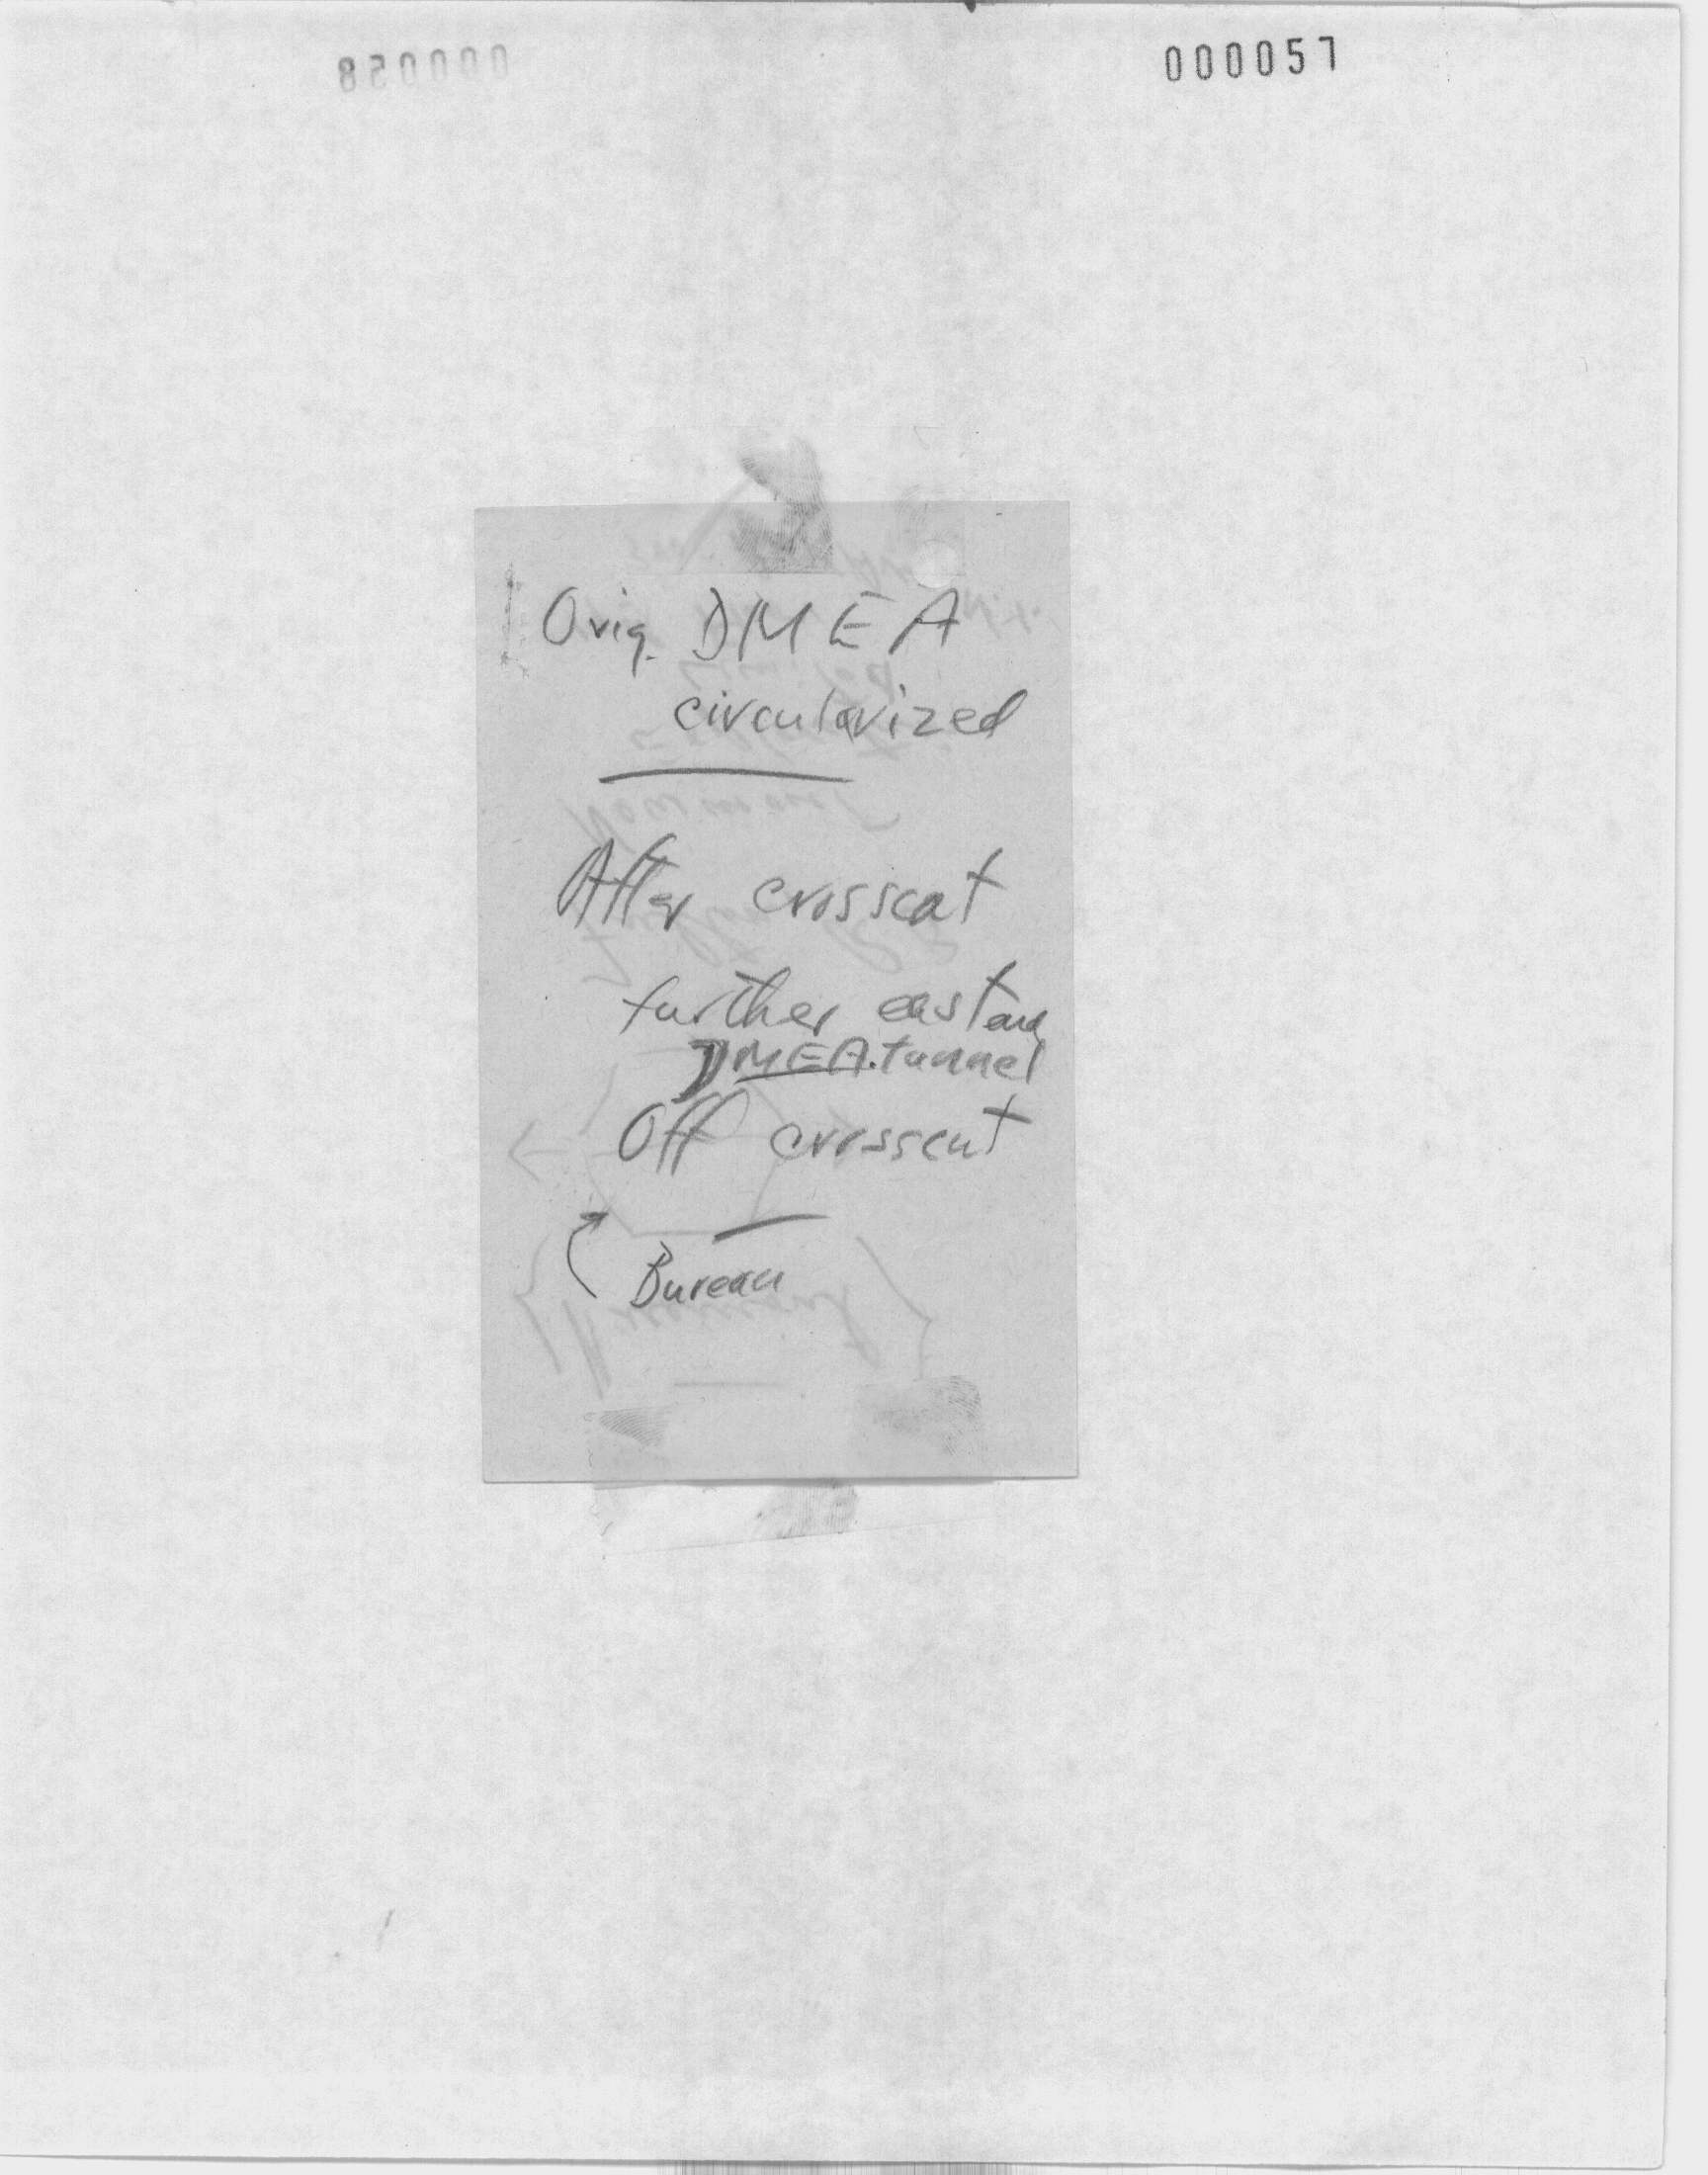 000057
000058
Orig. DMEA
circularized
After crosscut
further east and
DMEA. tunnel
Off crosscut
Bureau